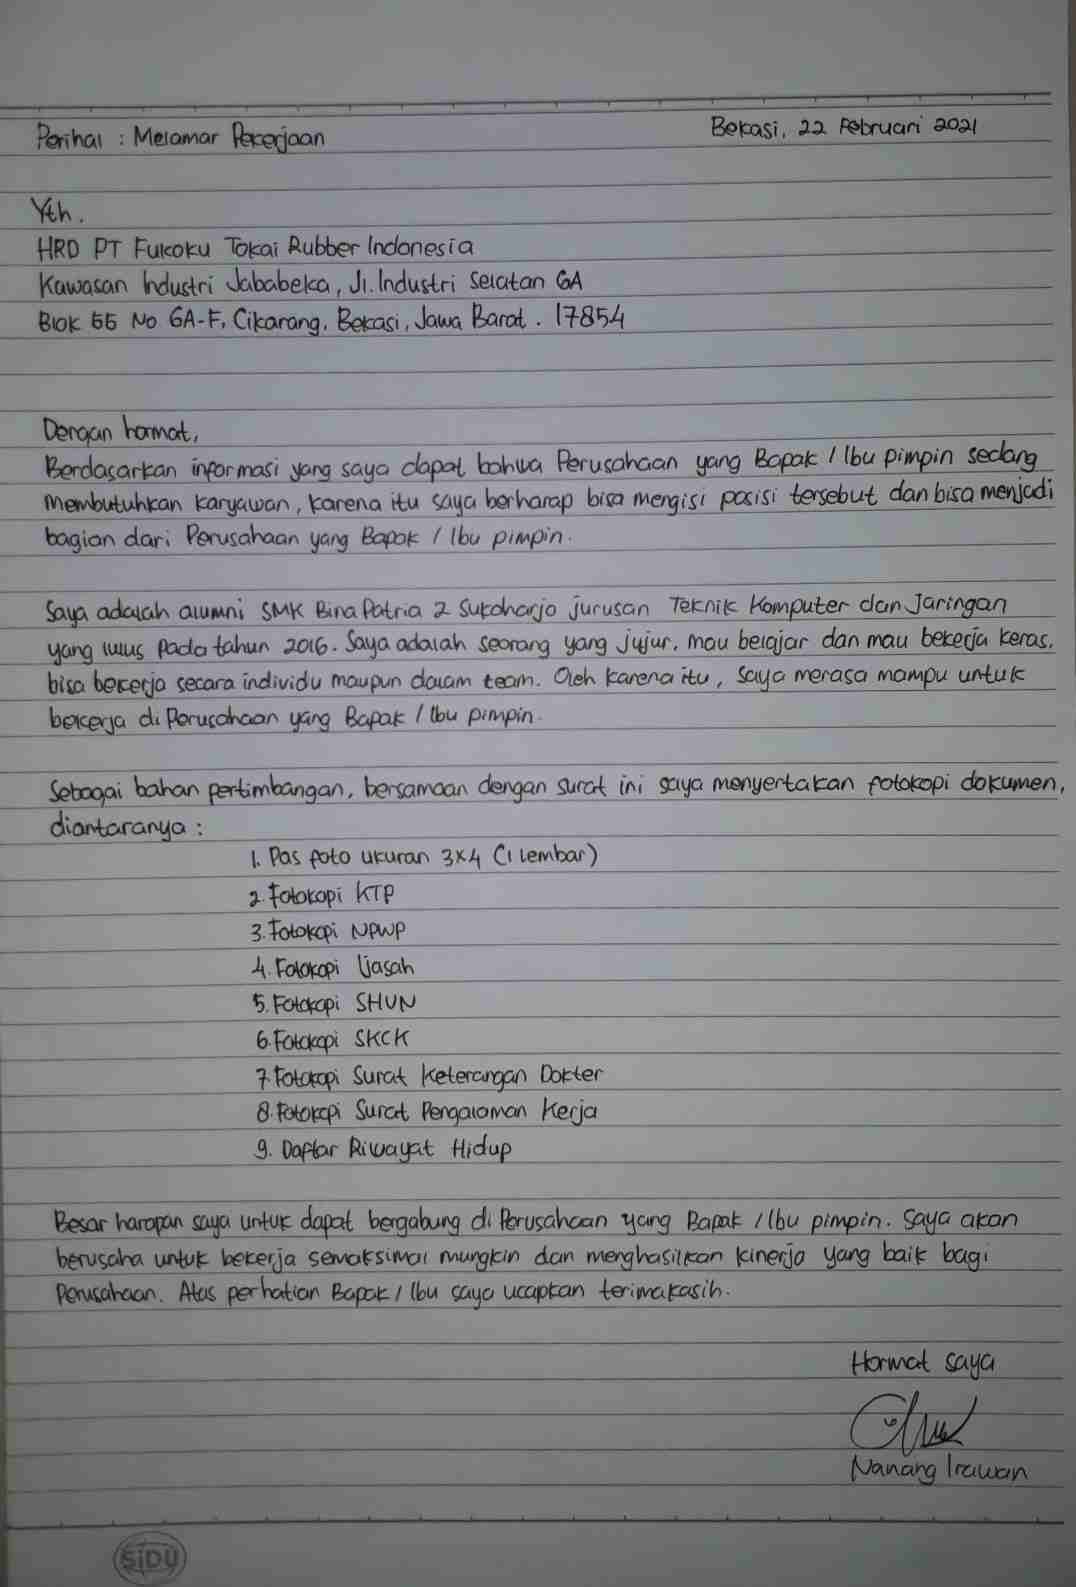 Perihal : Melamar Pekerjaan
Bekasi, 22 Februari 2021
Yth.
HRD PT Fukoku Tokai Rubber Indonesia
Kawasan Industri Jababeka, Jl. Industri Selatan 6A
Blok EE No 6A-F, Cikarang, Bekasi, Jawa Barat. 17854
Dengan hormat,
Berdasarkan informasi yang saya dapat bahwa Perusahaan yang Bapak / Ibu pimpin sedang
membutuhkan karyawan, karena itu saya berharap bisa mengisi posisi tersebut dan bisa menjadi
bagian dari Perusahaan yang Bapak / Ibu pimpin.
Saya adalah alumni SMK Bina Patria 2 Sukoharjo jurusan Teknik Komputer dan Jaringan
yang lulus pada tahun 2016. Saya adalah seorang yang jujur, mau belajar dan mau bekerja keras,
bisa bekerja secara individu maupun dalam team. Oleh karena itu, saya merasa mampu untuk
bekerja di Perusahaan yang Bapak / Ibu pimpin.
Sebagai bahan pertimbangan, bersamaan dengan surat ini saya menyertakan fotokopi dokumen,
diantaranya :
1. Pas foto ukuran 3x4 (1 lembar)
2. Fotokopi KTP
3. Fotokopi NPWP
4. Fotokopi Ijasah
5. Fotokopi SHUN
6. Fotokopi SKCK
7. Fotokopi Surat Keterangan Dokter
8. Fotokopi Surat Pengalaman Kerja
9. Daftar Riwayat Hidup
Besar harapan saya untuk dapat bergabung di Perusahaan yang Bapak / Ibu pimpin. Saya akan
berusaha untuk bekerja semaksimal mungkin dan menghasilkan kinerja yang baik bagi
Perusahaan. Atas perhatian Bapak / Ibu saya ucapkan terimakasih.
Hormat saya
Nanang Irawan
SiDU